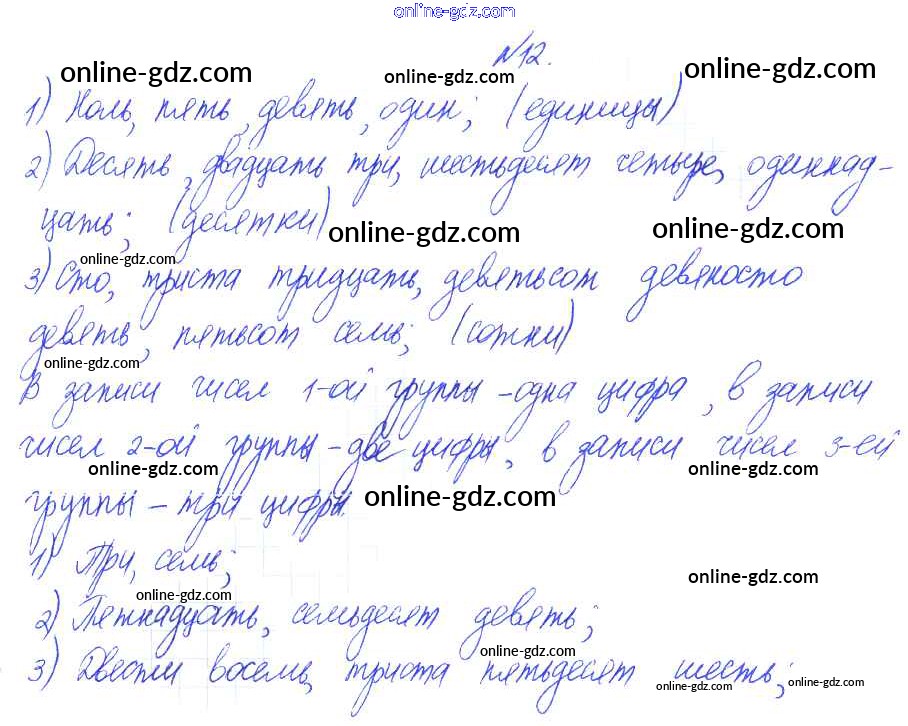 online-gdz.com
№12.
online-gdz.com online-gdz.com online-gdz.com
1) Ноль, пять, девять, один; (единицы)
2) Десять, двадцать три, шестьдесят четыре, одиннад-
цать; (десятки) online-gdz.com online-gdz.com
online-gdz.com
3) Сто, триста тридцать, девятьсот девяносто
девять, пятьсот семь; (сотни)
online-gdz.com online-gdz.com
В записи чисел 1-ой группы - одна цифра, в записи
чисел 2-ой группы - две цифры, в записи чисел 3-ей
online-gdz.com online-gdz.com
группы - три цифры. online-gdz.com
1) Три, семь;
online-gdz.com
online-gdz.com
2) Петнадцать, семьдесят девять;
online-gdz.com
3) Двести восемь, триста пятьдесят шесть;
online-gdz.com online-gdz.com